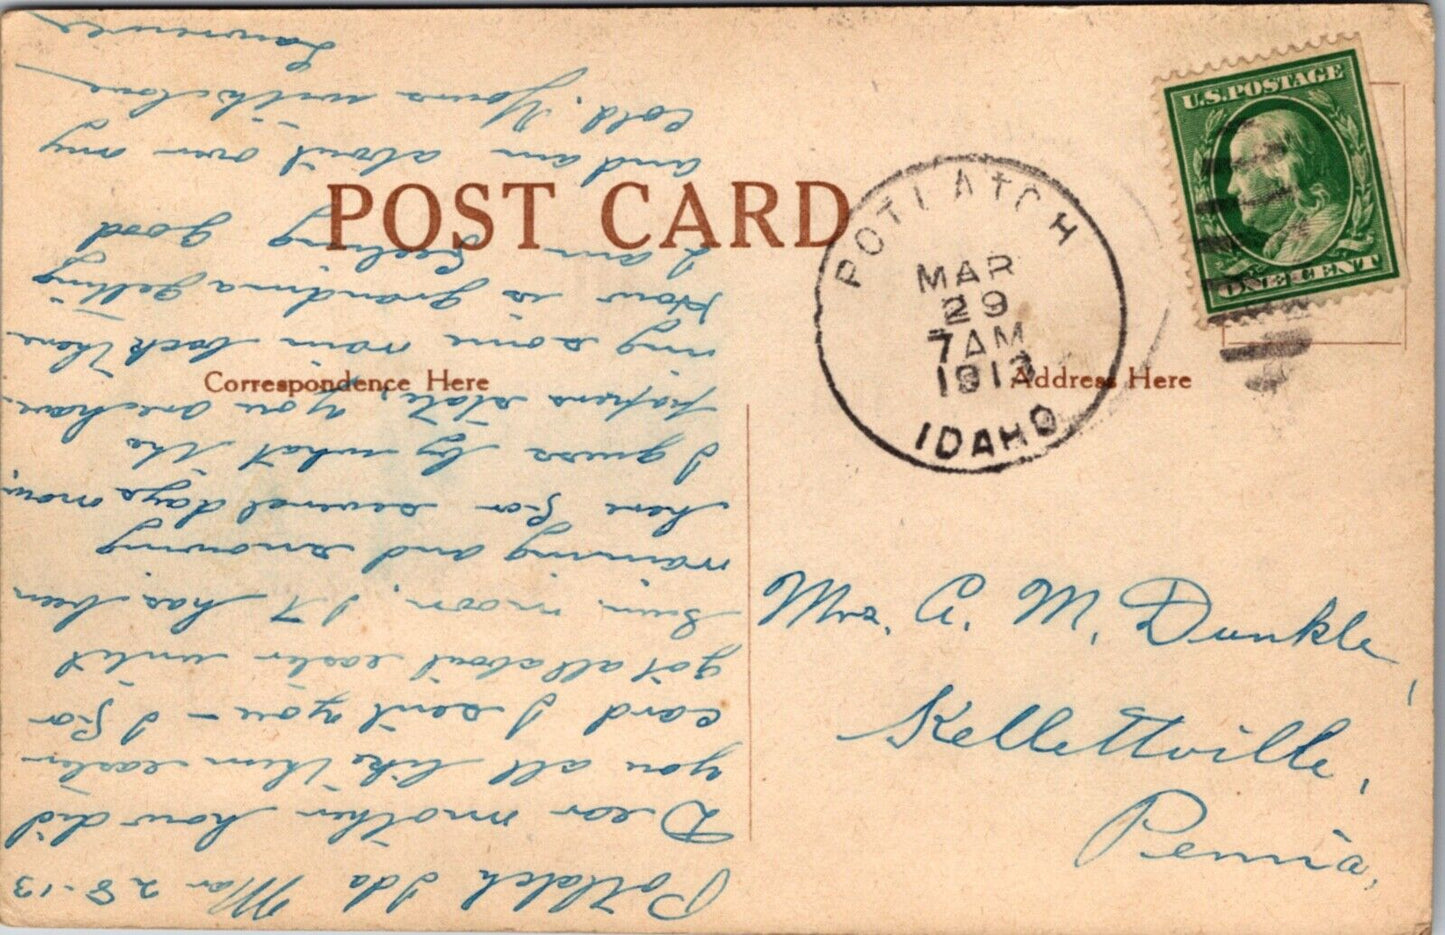 POST CARD
Correspondence Here
Address Here
U.S. POSTAGE
ONE CENT
POTLATCH
MAR
29
7 AM
1913
IDAHO
Mrs. A. M. Dunkle,
Kellettville,
Penna.
Potlatch Ida Mar 28-13
Dear mother how did
you all like them easter
card I sent you - I for
got all about easter untill
Sun. morn, IT has been
raining and snowing
here for several days now,
I guess by what the
papers state, you are hav-
ing some rain back there
How is grandma getting
I am feeling good
and am about over my
cold. Yours with love
Lawrence